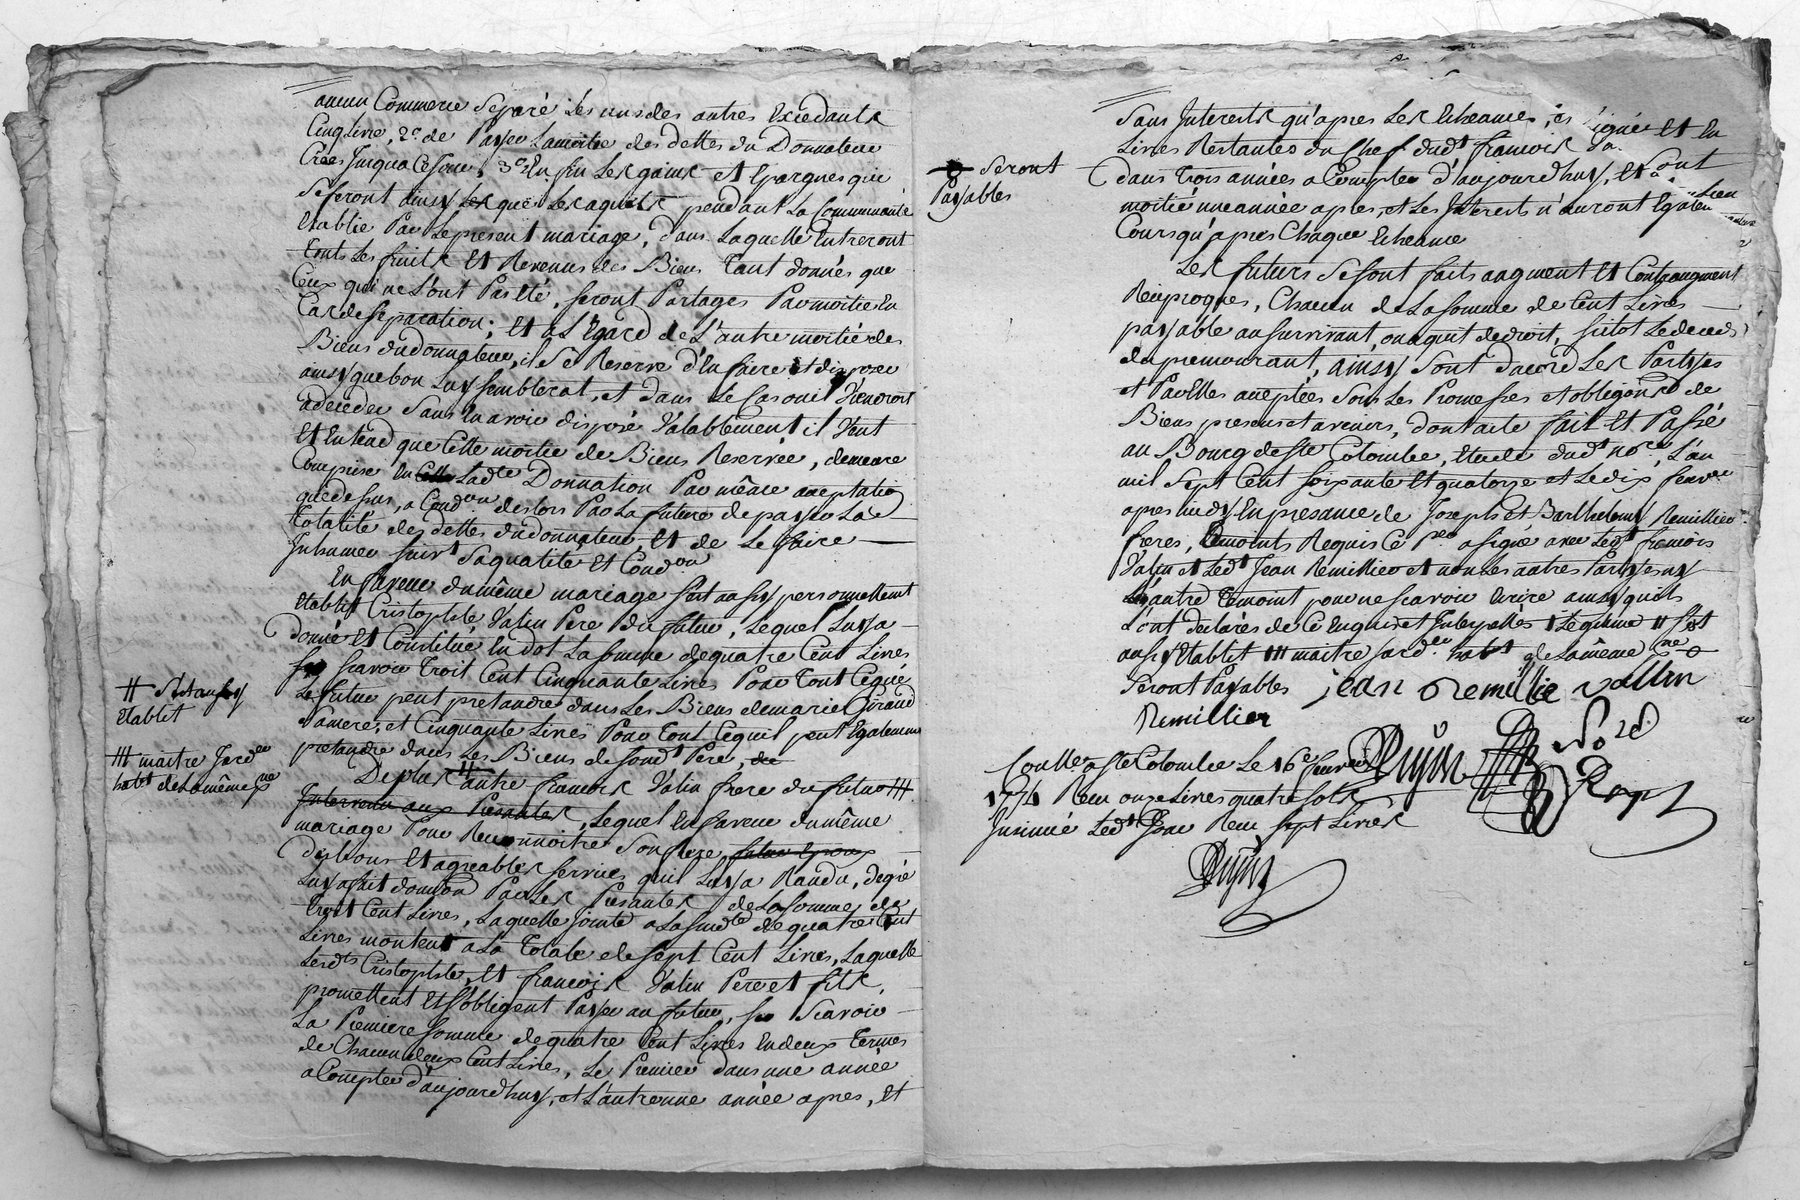 aucun Commerce Separé les uns des autres Excedants
Cinq livre, 2.º de Payer La moitie des dettes du Donnateur
Crées Jusqua Ce Jour, 3.º En fin Les gains et Epargnes qui
Se feront ainsy Les que Les aquets pendant La Communauté
Etablie Par Le present mariage, dans Laquelle Entreront
touts Les fruits Et Revenus des Biens tant donnés que
Ceux qui ne L'ont Pas Eté, seront Partagés Par moitie En
Cas de separation; Et a L'Egard de L'autre moitié des
Biens dudonnateur, il Se Reserve d'En faire et disposer
ainsy que bon Luy semblerat, et dans Le Cas ou il Viendroit
adeceder Sans En avoir disposé Valablement il Veut
Et Entend que Cette moitie de Biens Reservée, demeure
Comprise En Ladte Donnation Par même acceptation
que dessus, a Condon des lors Par La future de payer La
totalité des dettes dudonnateur Et de Le faire
Inhumer suivt Sa qualité Et Condon
En faveur du même mariage sest aussy personnellement
Etablit Cristophle Valin Pere du futur, Lequel Luy a
donné Et Constitué En dot La somme de quatre Cent Livres
scavoir troit Cent Cinquante Livres Pour tout Ceque
Le futur peut pretandre dans Les Biens de marie Giraud
Samere, et Cinquante Livres Pour tout Cequil peut Egalement
pretandre dans Les Biens de sondt Pere, de
# Est aussy
Etablit
De plus # autre francois Valin frere du futur ###
### maitre Jarder
habt de La même pne
Intervenu aux Presantes, Lequel En faveur du même
mariage Pour Reconnoitre Son frere futur Epoux
des bons Et agreables services quil Luy a Randu, degré
Luy a fait donnon Par Les Presantes de La Somme de
troit Cent Livres, Laquelle jointe a La susdte de quatre Cent
Livres montent a La totale de sept Cent Livres, Laquelle
Lesdts Cristophle, Et francois Valin Pere et fils,
promettent Et S'obligent Payer au futur, Scavoir
La Premiere Somme de quatre Cent Livres En deux termes
de Chacun deux Cent Livres, Le Premier dans une année
a Compter d'aujourd'huy, et L'autre une année apres, Et
Sans Interests qu'apres Les Echeances, Et En
Livres Restantes du Chef dudt francois
seront
Payables
dans trois années a Compter d'aujourd'huy, Et
moitié une année apres, et Les Interests n'auront Egalem
Cours qu'apres Chaque Echeance
Les futurs Se sont faits augment Et Contraugment
Reciproques, Chacun de La somme de Cent Livres
payable au survivant, ou a quit de droit, sitot Le deceds
du premourant, ainsy Sont dacord Les Partyes
et Par Elles acceptées Sous Les Promesses et obligaons de
Biens presens et avenirs, dont acte fait Et Passé
au Bourg de Ste Colombe, Etude dudt nore, L'an
mil Sept Cent soixante Et quatorze et Le dix fevrier
apres midy En presance de Joseph et Barthelemy Remillier
freres, temoints Requis Ce Per a signé avec Ledt francois
Valin et Ledt Jean Remillier et non Les autres Partyes ny
L'autre temoint pour ne scavoir Ecrire ainsy quils
L'ont declarés de Ce Enquis et Interpellés # Est
aussy Etablit ### maitre Jarder habt de La même pne
seront Payables jean Remillie vallin
Remillier
Conlle. a Ste Colombe Le 16e fevrier
1774 Recu onze Livres quatre sols
Insinué Ledt Jour Recu sept Livres